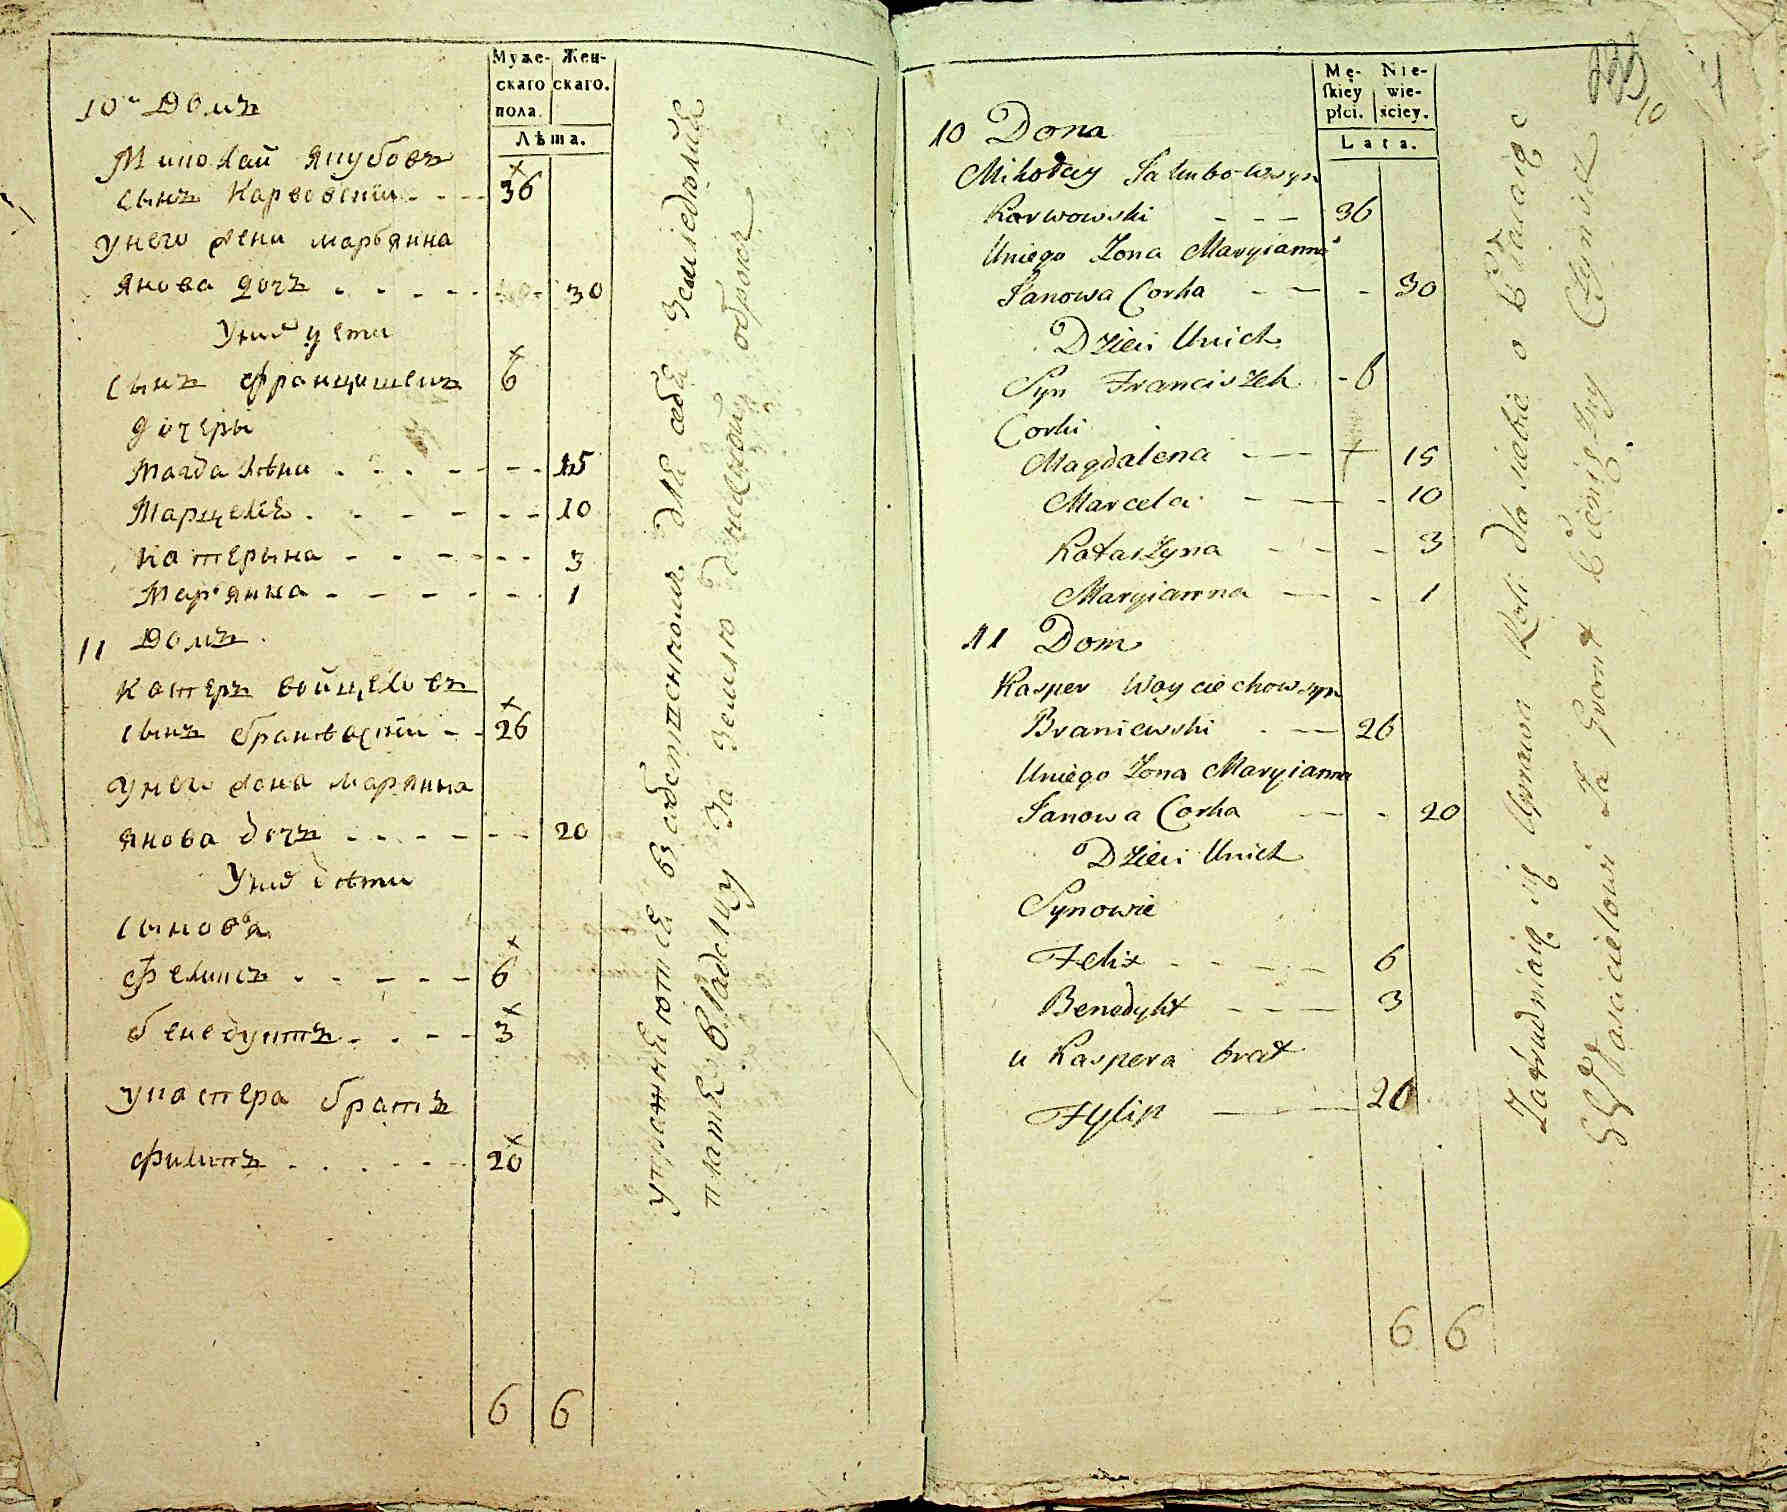 Муже-
скаго
пола.
Жен-
скаго.
Лѣта.
10й Домъ
Миколай Якубовъ
сынъ Карвовскій - - - 36
У него жена Марьянна
Янова дочъ - - - - - 30
У них дети
сынъ Францишекъ 6
дочеры
Магдалѣна - - - - - - 15
Марцеля - - - - - - 10
Катерына - - - - - - 3
Марьянна - - - - - - 1
11 Домъ
Каспръ Войцеховъ
сынъ Браневскій - - 26
У него жена Марянна
Янова дочъ - - - - - - 20
У них дѣти
сыновья
Феликсъ - - - - - 6
Бенедуктъ - - - - 3
У Каспера братъ
Филипъ - - - - - - 20
6 6
упражняются въ собственномъ для себя земледѣлия
платя владелцу за землю денежный оброкъ
10
Mę-
skiey
płci.
Nie-
wie-
sciey.
Lata.
10 Dona
Mikołay Jakubow syn
Karwowski - - - 36
U niego Zona Maryianna
Janowa Corka - - - 30
Dzieci U nich
Syn Franciszek - 6
Corki
Magdalena - - - 15
Marcela - - - 10
Katarzyna - - - 3
Maryianna - - 1
11 Dom
Kasper Woyciechow syn
Braniewski - - - 26
U niego Zona Maryianna
Janowa Corka - - 20
Dzieci U nich
Synowie
Felix - - - - 6
Benedykt - - - 3
u Kaspera brat
Fylip - - - 20
6 6
Zatrudniaią się Uprawa Roli dla siebie
Włascicielowi Za Gront Czynsz